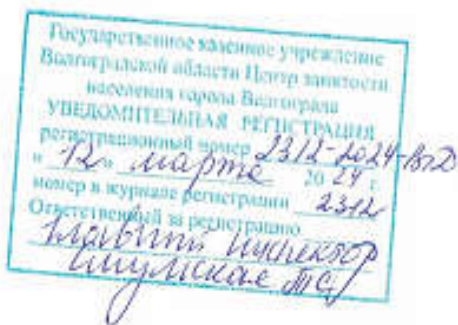 Государственное казенное учреждение
Волгоградской области Центр занятости
населения города Волгограда
УВЕДОМИТЕЛЬНАЯ РЕГИСТРАЦИЯ
регистрационный номер 2312-2024-ВлД
"12" марта 2024 г.
номер в журнале регистрации 2312
Ответственный за регистрацию
главный инспектор